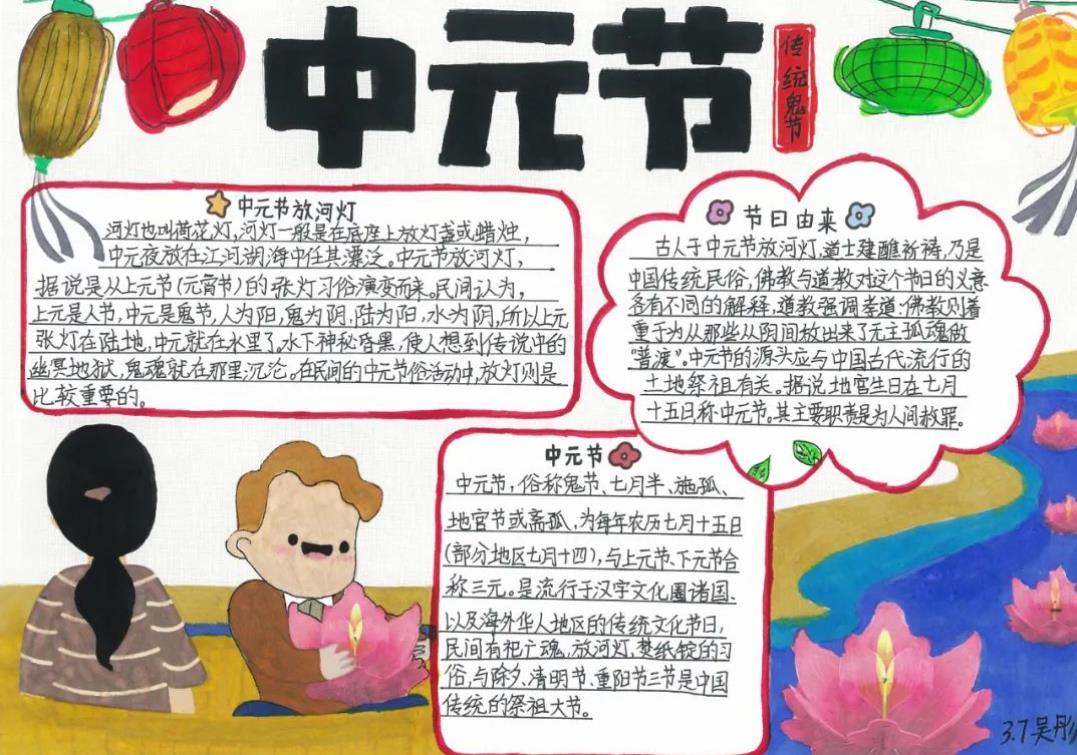 中元节
传统鬼节
中元节放河灯
河灯也叫荷花灯,河灯一般是在底座上放灯盏或蜡烛,
中元夜放在江河湖海中任其漂泛。中元节放河灯,
据说是从上元节(元宵节)的张灯习俗演变而来。民间认为,
上元是人节,中元是鬼节,人为阳,鬼为阴,陆为阳,水为阴,所以上元
张灯在陆地,中元就在水里了。水下神秘昏黑,使人想到传说中的
幽冥地狱,鬼魂就在那里沉沦。在民间的中元节俗活动中,放灯则是
比较重要的。
节日由来
古人于中元节放河灯,道士建醮祈祷,乃是
中国传统民俗,佛教与道教对这个节日的义意
各有不同的解释,道教强调孝道;佛教则着
重于为从那些从阴间放出来了无主孤魂做
“普渡”。中元节的源头应与中国古代流行的
土地祭祖有关。据说地官生日在七月
十五日称中元节。其主要职责是为人间赦罪。
中元节
中元节,俗称鬼节、七月半、施孤、
地官节或斋孤,为每年农历七月十五日
(部分地区七月十四),与上元节、下元节合
称三元。是流行于汉字文化圈诸国、
以及海外华人地区的传统文化节日,
民间有祀亡魂,放河灯,焚纸锭的习
俗,与除夕、清明节、重阳节三节是中国
传统的祭祖大节。
3.7吴彤